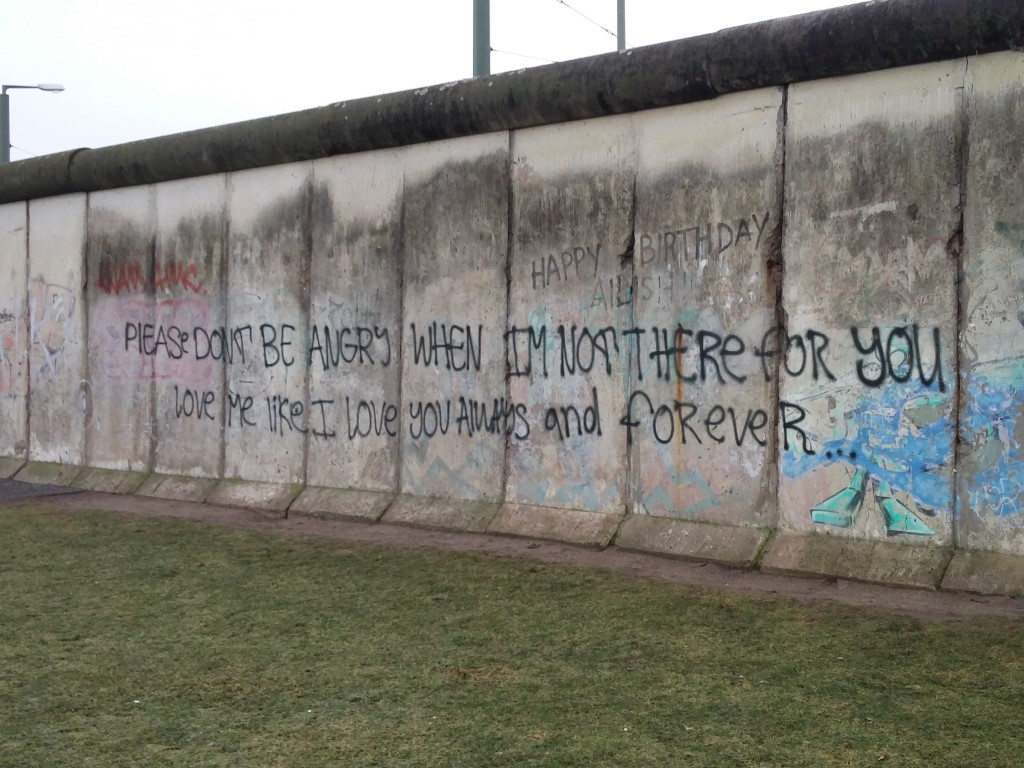 HAPPY BIRTHDAY
PLEASE DON'T BE ANGRY WHEN I'M NOT THERE FOR YOU
LOVE ME LIKE I LOVE YOU ALWAYS and FOREVER...